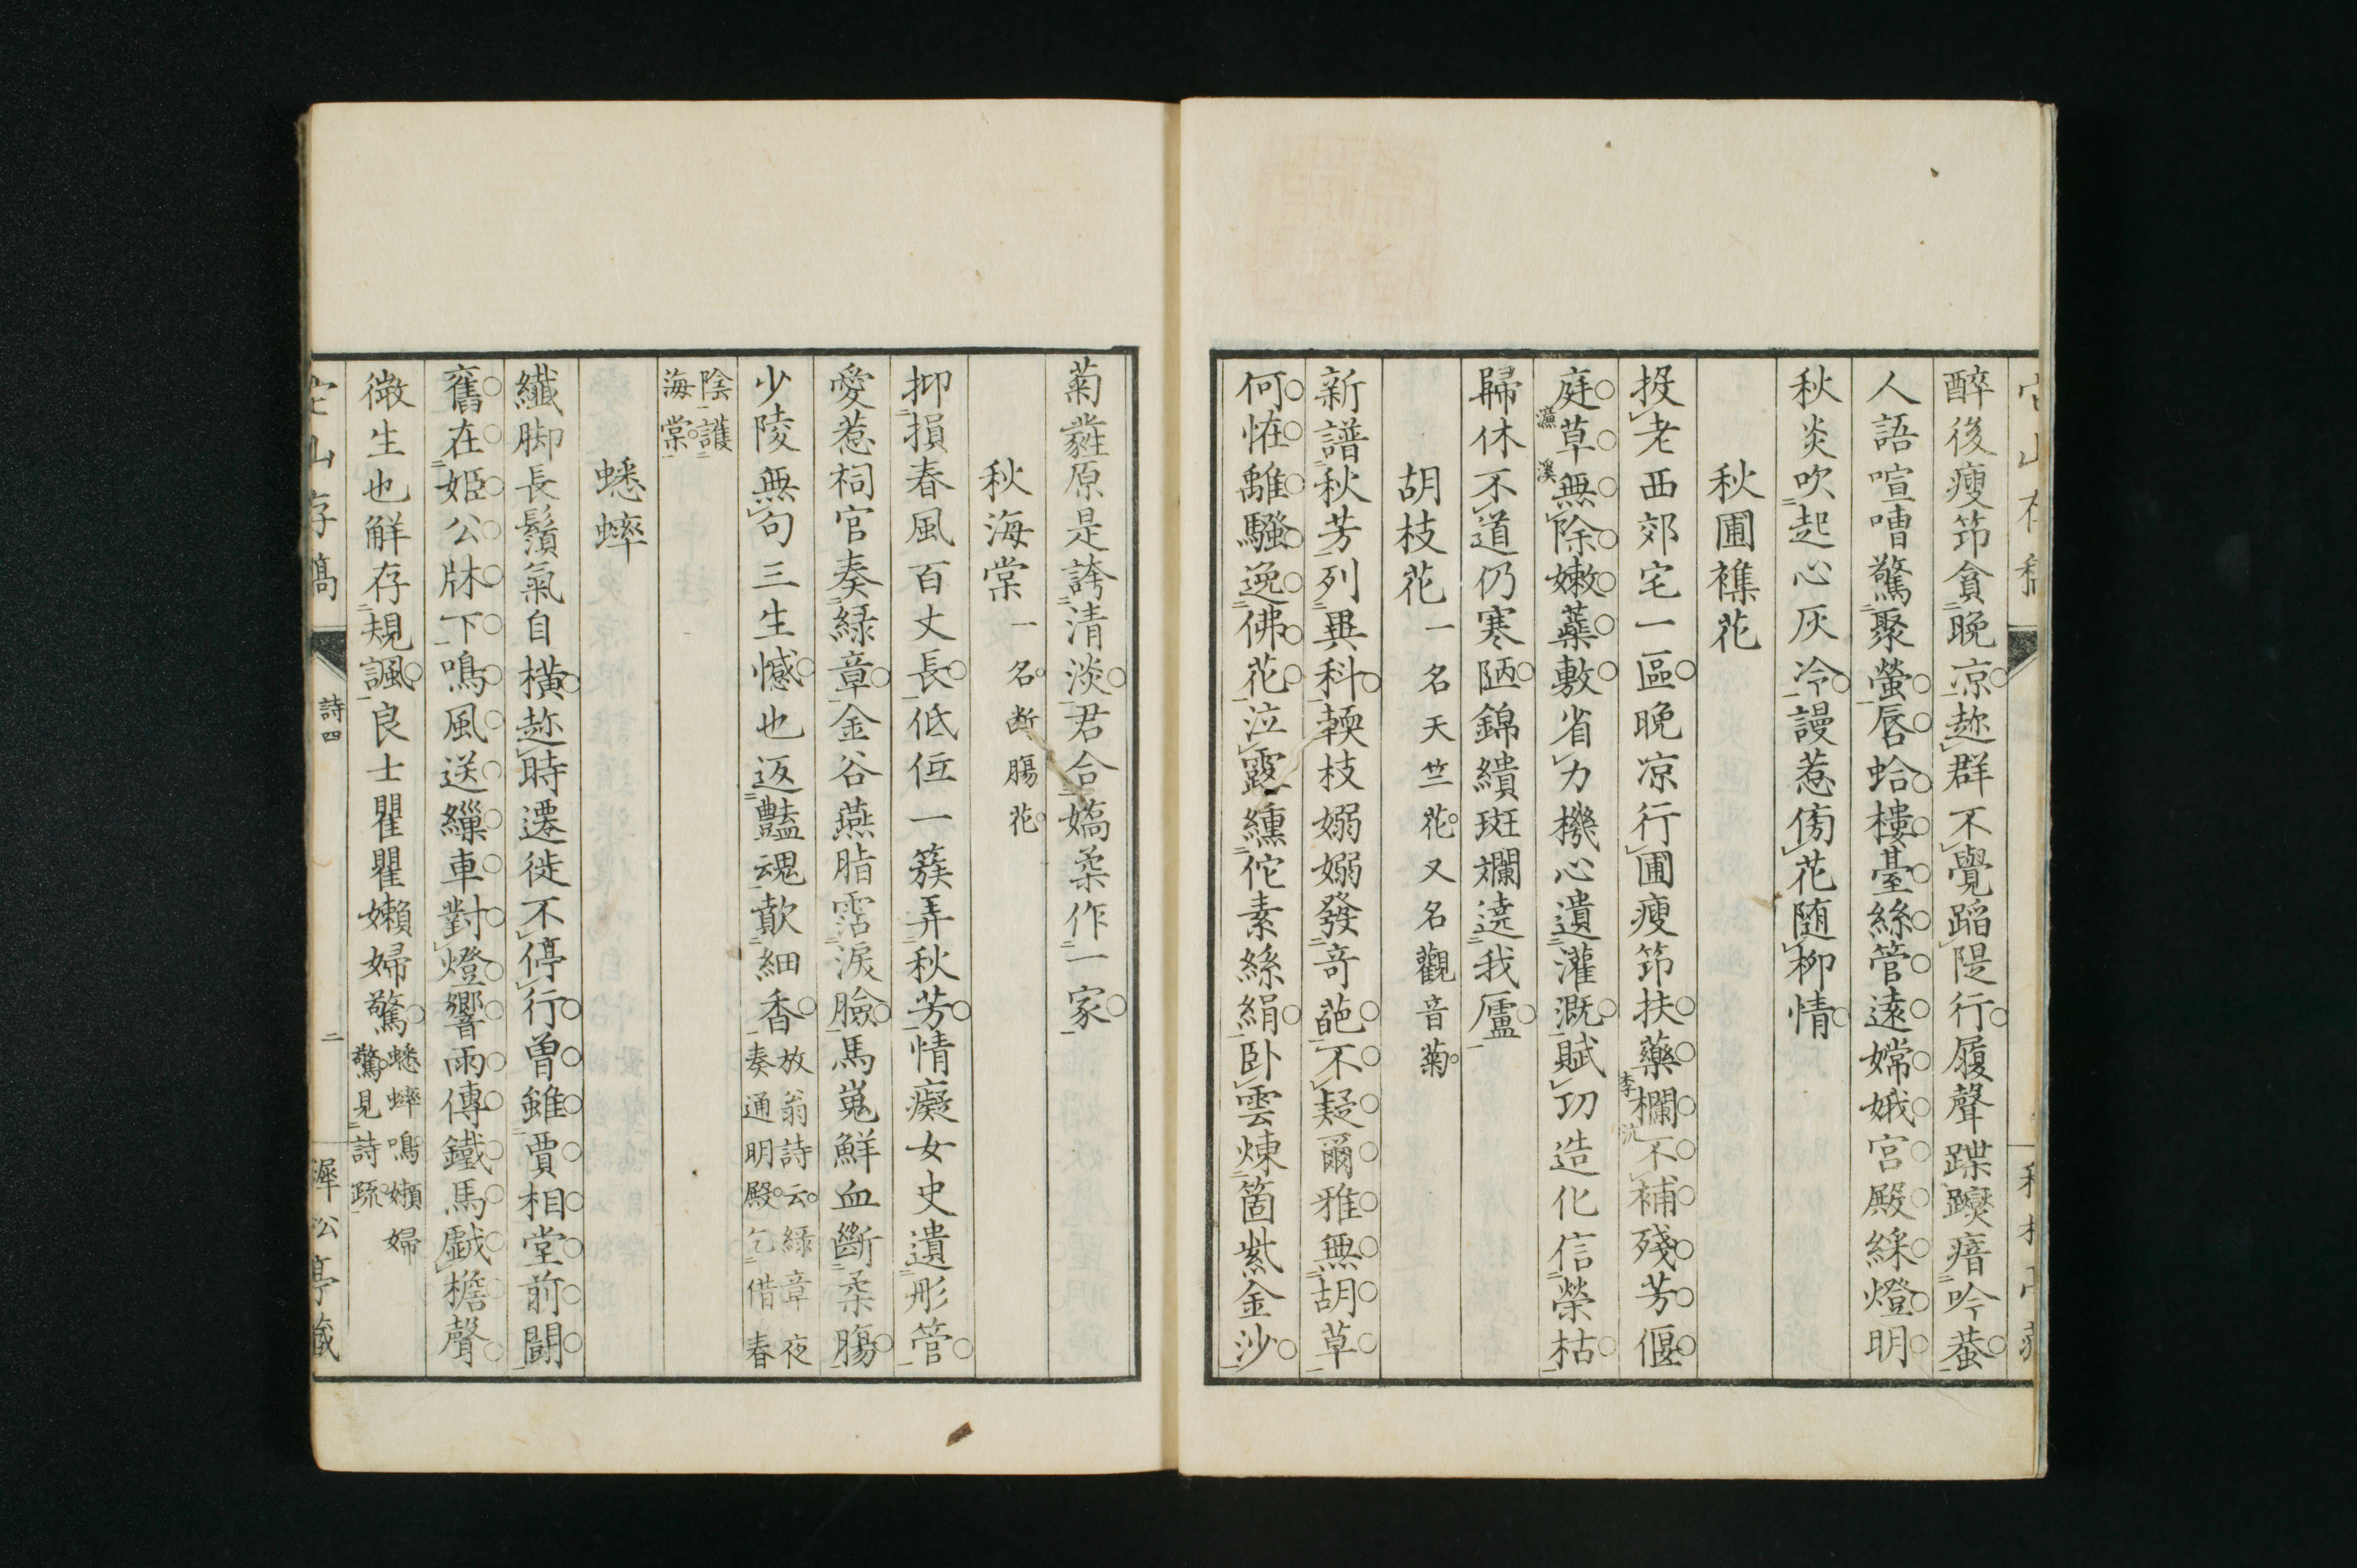 醉後瘦筇貪晚凉趂群不覺蹈隄行履聲蹀躞瘖吟蛬
人語喧嘈驚聚螢唇蛤樓臺絲管遠嫦娥宮殿綵燈明
秋炎吹起心灰冷謾惹傍花随柳情
秋圃襍花
投老西郊宅一區晚凉行圃瘦筇扶藥欄不補殘芳偃
李沆
庭草無除嫩蘂敷省力機心遺灌溉賦功造化信榮枯
濂溪
歸休不道仍寒陋錦繢斑斕遶我廬
胡枝花一名天竺花又名觀音菊
新譜秋芳列異科輭枝嫋嫋發奇葩不疑爾雅無胡草
何恠離騷逸佛花泣露纁佗素絲絹卧雲煉箇紫金沙
菊蕤原是誇清淡君合嬌柔作一家
秋海棠一名断腸花
抑損春風百丈長低佪一簇弄秋芳情癡女史遺彤管
愛惹祠官奏緑章金谷燕脂霑淚臉馬嵬鮮血斷柔腸
少陵無句三生憾也返豔魂歆細香放翁詩云緑章夜
奏通明殿乞借春
陰護
海棠
蟋蟀
纖脚長鬚氣自橫趂時遷徙不停行曽雖賈相堂前鬪
舊在姫公牀下鳴風送繅車對燈響雨傳鐵馬戯檐聲
微生也解存規諷良士瞿瞿嬾婦驚蟋蟀鳴嬾婦
驚見詩疏
空山存稿
詩四
二
犀松亭藏